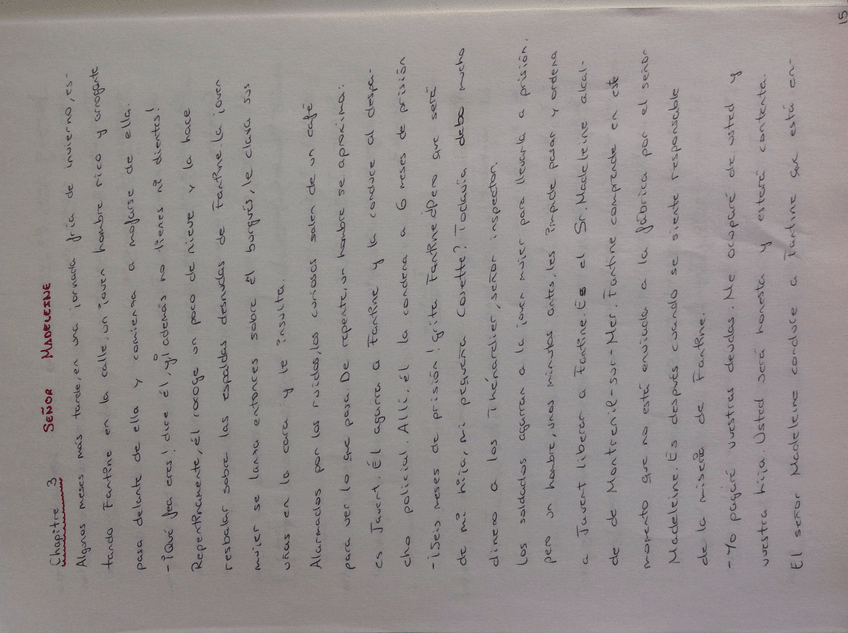 Chapitre 3 SEÑOR MADELEINE
Algunos meses más tarde, en una jornada fría de invierno, es-
tando Fantine en la calle, un joven hombre rico y arrogante
pasa delante de ella y comienza a mofarse de ella.
-¡Qué fea eres! dice él, y ¡además no tienes ni dientes!
Repentinamente, él recoge un poco de nieve y la hace
resbalar sobre las espaldas desnudas de Fantine. La joven
mujer se lanza entonces sobre él burgués, le clava sus
uñas en la cara y le insulta.
Alarmados por los ruidos, los curiosos salen de un café
para ver lo que pasa. De repente, un hombre se aproxima:
es Javert. Él agarra a Fantine y la conduce al despa-
cho policial. Allí, él la condena a 6 meses de prisión
-¡Seis meses de prisión! grita Fantine ¿Pero que será
de mi hija, mi pequeña Cosette? Todavía debo mucho
dinero a los Thénardier, señor inspector.
Los soldados agarran a la joven mujer para llevarla a prisión.
pero un hombre, unos minutos antes, les impide pasar y ordena
a Javert liberar a Fantine. Es el Sr. Madeleine alcal-
de de Montreuil-sur-Mer. Fantine comprende en este
momento que no está enviada a la fábrica por el señor
Madeleine. Es después cuando se siente responsable
de la miseria de Fantine.
-Yo pagaré vuestras deudas. Me ocuparé de usted y
vuestra hija. Usted será honesta y estará contenta.
El señor Madeleine conduce a Fantine que está en-
15